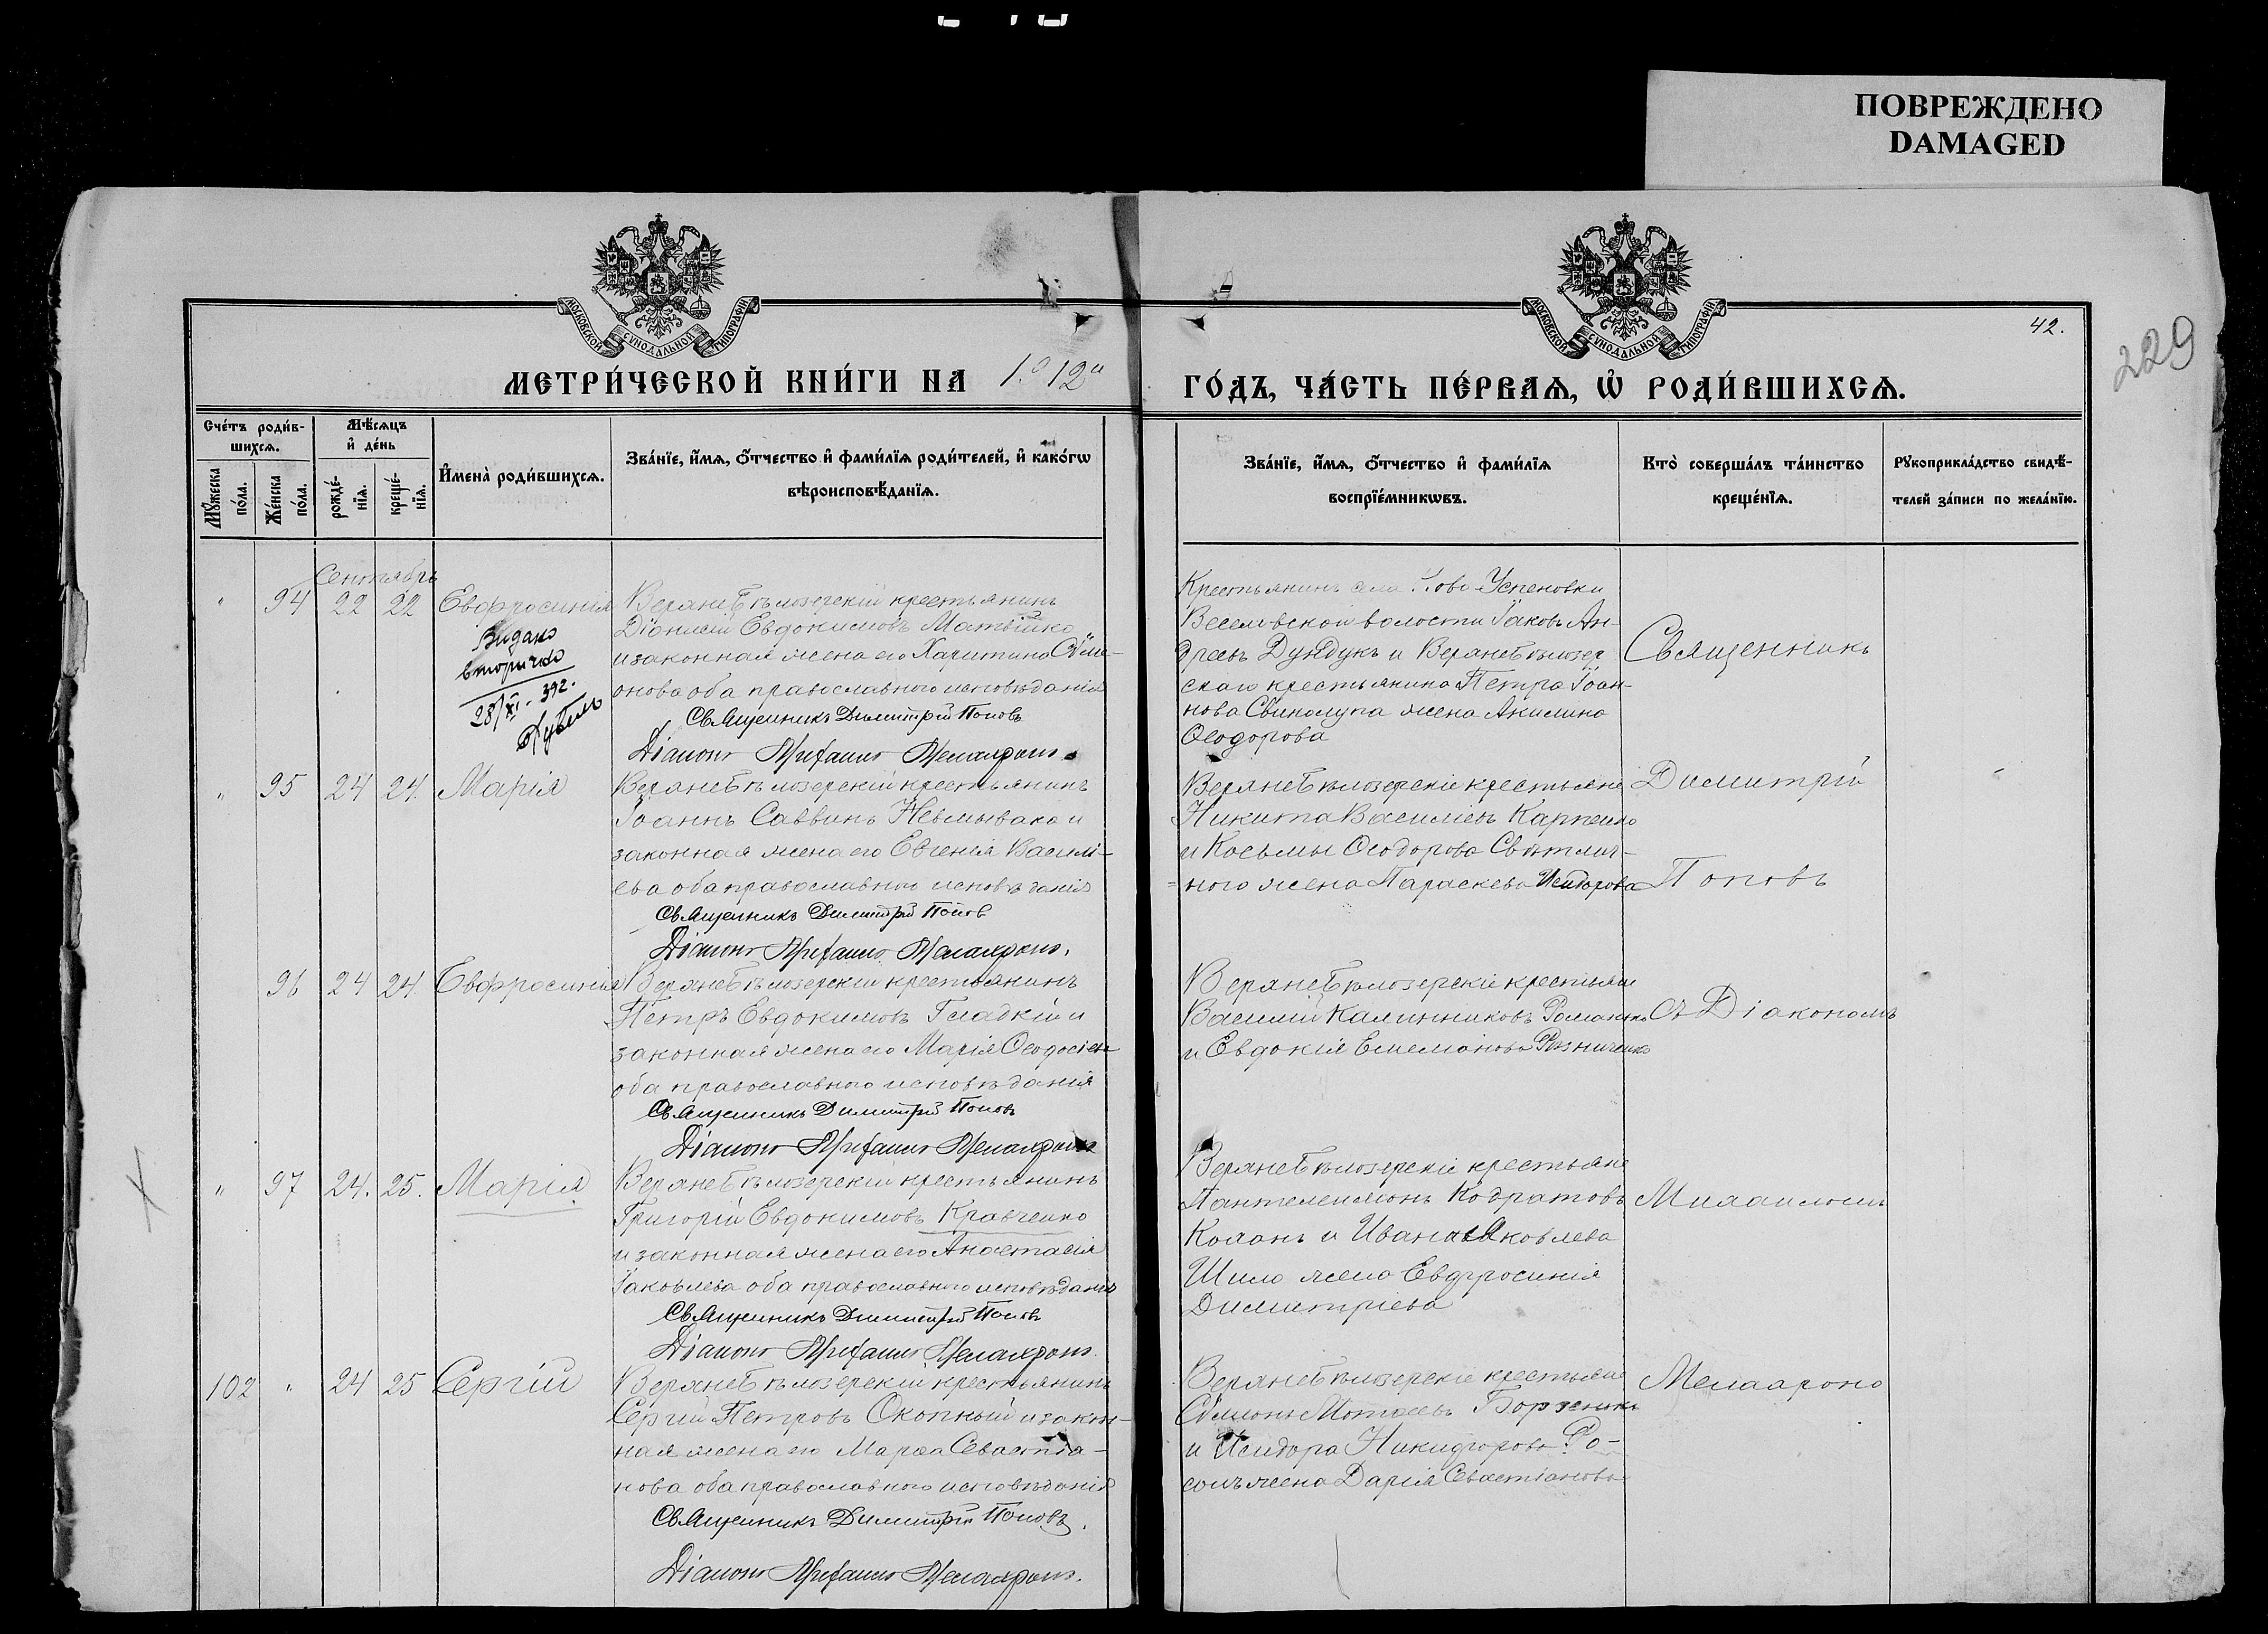 ПОВРЕЖДЕНО
DAMAGED
МОСКОВСКОЙ СѴНОДАЛЬНОЙ ТИПОГРАФІИ
МОСКОВСКОЙ СѴНОДАЛЬНОЙ ТИПОГРАФІИ
42.
229
МЕТРИ́ЧЕСКОЙ КНИ́ГИ НА 1912й
ГО́ДЪ, ЧА́СТЬ ПЕ́РВАѦ, Ѡ҆ РОДИ́ВШИХСѦ.
Сче́тъ роди́в-
шихсѧ.
Мꙋ́жеска по́ла.
Же́нска по́ла.
Мѣ́сѧцъ
и҆ де́нь
рожде́-
нїѧ.
креще́-
нїѧ.
И҆мена̀ роди́вшихсѧ.
Зва́нїе, и҆́мѧ, ѻ҆́тчество и҆ фами́лїѧ роди́телей, и҆ како́гѡ
вѣроисповѣ́данїѧ.
Зва́нїе, и҆́мѧ, ѻ҆́тчество и҆ фами́лїѧ
воспрїе́мникѡвъ.
Кто̀ соверша́лъ та́инство
креще́нїѧ.
Рꙋкоприкла́дство свидѣ́-
телей за́писи по жела́нїю.
Сентябрь
" 94 22 22 Евфросинія
Видано
вторично
28/XI - 392.
Верхнебѣлозерскій крестьянинъ
Діонисій Евдокимовъ Матвійко
и законная жена его Харитина Сѵме-
онова оба православнаго исповѣданія
Священникъ Димитрій Поповъ
Діаконъ Михаилъ Мелахронъ.
Крестьянинъ села Ново-Успеновки
Веселовской волости Іаковъ Ан-
дреевъ Дундукъ и Верхнебѣлозер
скаго крестьянина Петра Іоан-
нова Свинолупа жена Акилина
Ѳеодорова
Священникъ
" 95 24 24 Марія
Верхнебѣлозерскій крестьянинъ
Іоаннъ Саввинъ Невмывако и
законная жена его Евгенія Василі-
ева оба православнаго исповѣданія
Священникъ Димитрій Поповъ
Діаконъ Михаилъ Мелахронъ.
Верхнебѣлозерскіе крестьяне
Никита Василіевъ Карпенко
и Косьмы Ѳеодорова Свѣтлич-
наго жена Параскева Исидорова
Димитрій
Поповъ
96 24 24 Евфросинія
Верхнебѣлозерскій крестьянинъ
Петръ Евдокимовъ Гладкій и
законная жена его Марія Ѳеодосіева
оба православнаго исповѣданія
Священникъ Димитрій Поповъ
Діаконъ Михаилъ Мелахронъ
Верхнебѣлозерскіе крестьяне
Василій Калинниковъ Романенко
и Евдокія Емеліанова Рѣзниченко
съ Діакономъ
" 97 24. 25. Марія
Верхнебѣлозерскій крестьянинъ
Григорій Евдокимовъ Кравченко
и законная жена его Анастасія
Іаковлева оба православнаго исповѣданія
Священникъ Димитрій Поповъ
Діаконъ Михаилъ Мелахронъ.
Верхнебѣлозерскіе крестьяне
Пантелеимонъ Кодратовъ
и Ивана Яковлева
Шило жена Евфросинія
Димитріева
Михаиломъ
102 " 24 25 Сергій
Верхнебѣлозерскій крестьянинъ
Сергій Петровъ Окопный и закон-
ная жена его Марѳа Севастіа-
нова оба православнаго исповѣданія
Священникъ Димитрій Поповъ.
Діаконъ Михаилъ Мелахронъ.
Верхнебѣлозерскіе крестьяне
Сѵмеонъ
и Исидора Никифорова Ро-
солъ жена Дарія Севастіанова
Мелахроно